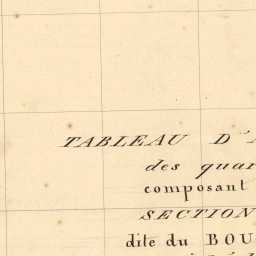 TABLEAU D'
des quar
composant
SECTION
dite du BOU